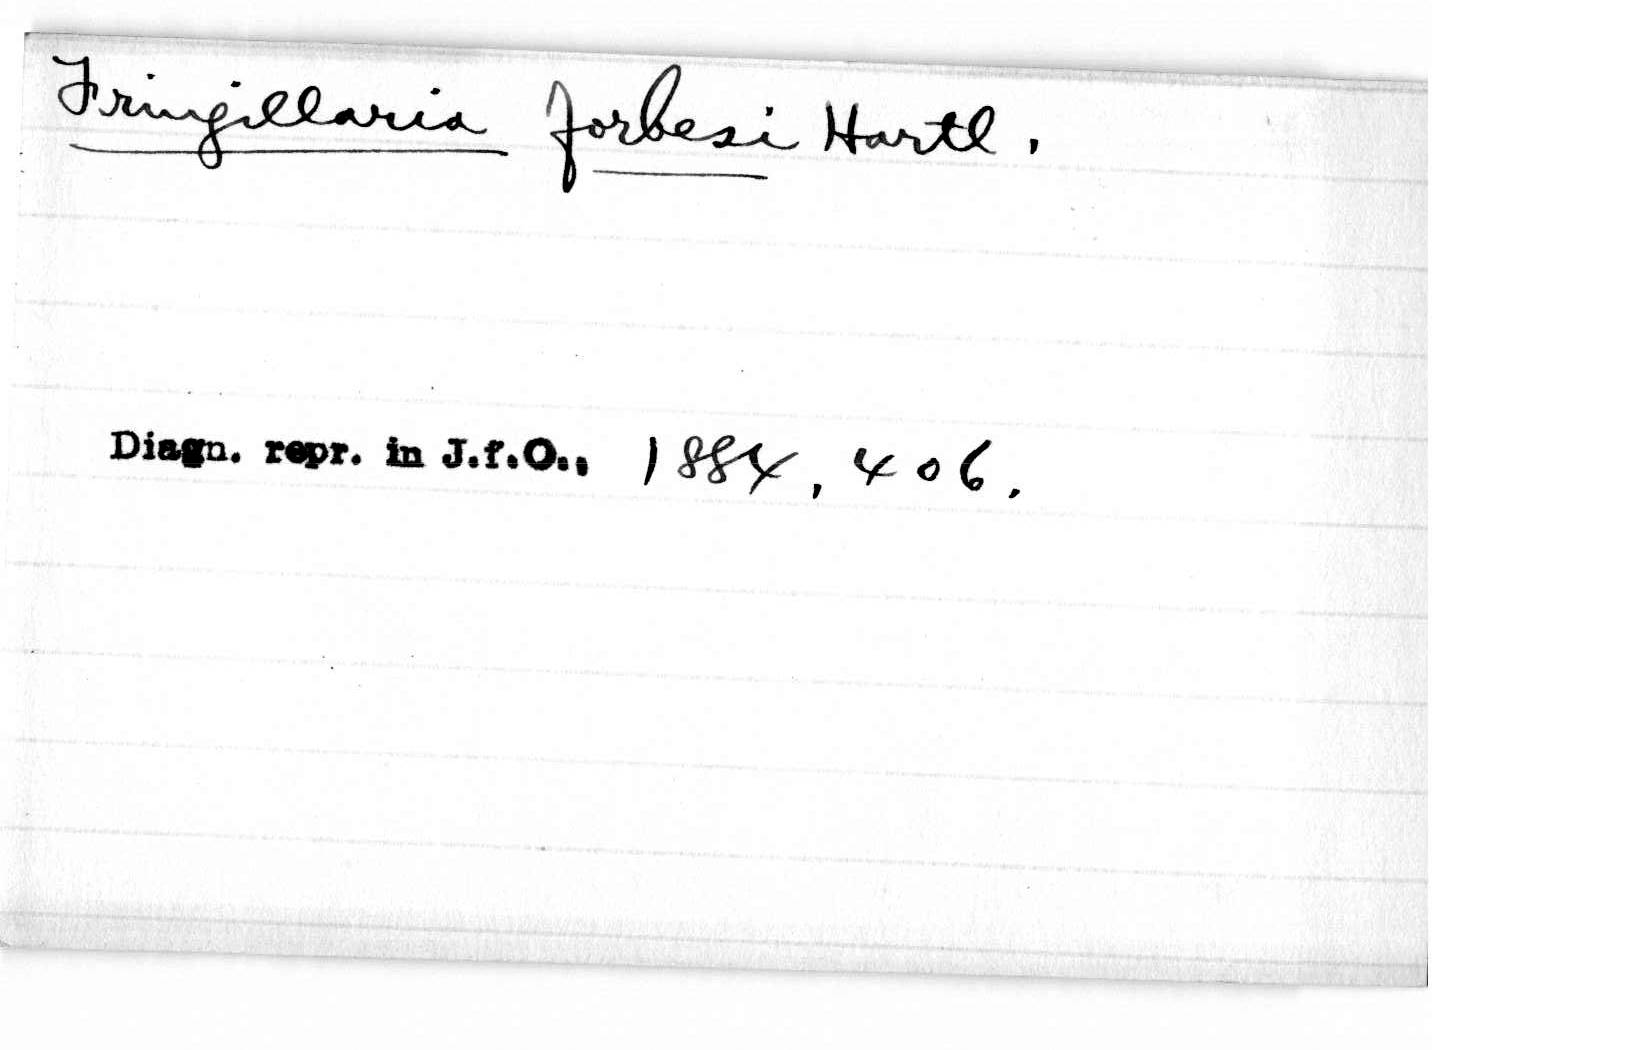 Fringillaria forbesi Hartl.
Diagn. repr. in J.f.O., 1884, 406.